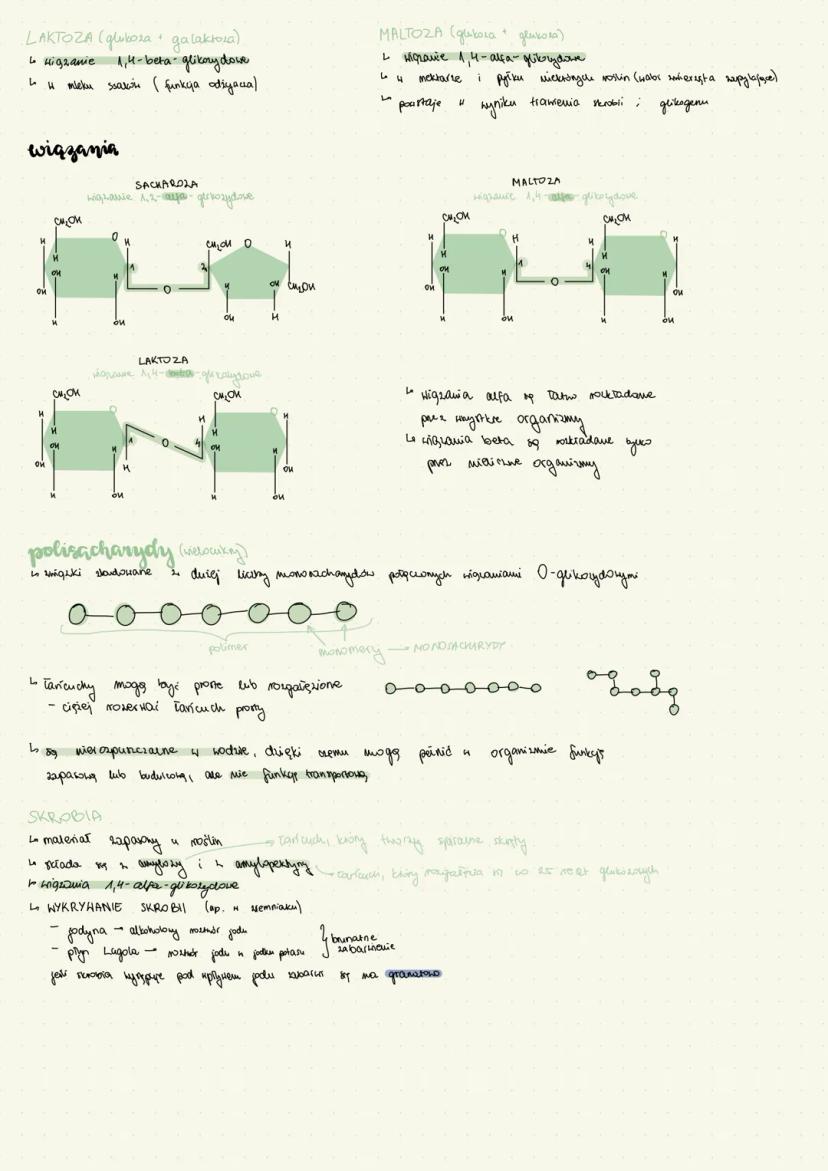 LAKTOZA (glukoza + galaktoza)
↳ wiązanie 1,4-beta-glikozydowe
↳ w mleku ssaków (funkcja odżywcza)
MALTOZA (glukoza + glukoza)
↳ wiązanie 1,4-alfa-glikozydowe
↳ w nektarze i pyłku niektórych roślin (wabi zwierzęta zapylające)
↳ powstaje w wyniku trawienia skrobii i glikogenu
wiązania
SACHAROZA
wiązanie 1,2-alfa-glikozydowe
CH₂OH
H
O
H
H
OH
1
H
OH
H
OH
O
CH₂OH
O
H
2
H
OH
CH₂OH
OH
H
MALTOZA
wiązanie 1,4-alfa-glikozydowe
CH₂OH
H
O
H
H
OH
1
H
OH
H
OH
O
CH₂OH
H
O
H
H
4
OH
H
OH
H
OH
LAKTOZA
wiązanie 1,4-beta-glikozydowe
CH₂OH
H
O
H
OH
1
H
OH
H
H
OH
O
CH₂OH
H
O
H
H
4
OH
H
OH
H
OH
↳ wiązania alfa są łatwo rozkładane
przez wszystkie organizmy
↳ wiązania beta są rozkładane tylko
przez nieliczne organizmy
polisacharydy (wielocukry)
↳ związki zbudowane z dużej liczby monosacharydów połączonych wiązaniami O-glikozydowymi
polimer
monomery → MONOSACHARYDY
↳ łańcuchy mogą być proste lub rozgałęzione
- ciężej rozerwać łańcuch prosty
↳ są nierozpuszczalne w wodzie, dzięki czemu mogą pełnić w organizmie funkcję
zapasową lub budulcową, ale nie funkcję transportową
SKROBIA
↳ materiał zapasowy u roślin
→ łańcuch, który tworzy spiralne skręty
↳ składa się z amylozy i z amylopektyny
→ łańcuch, który rozgałęzia się co 25 reszt glukozowych
↳ wiązania 1,4-alfa-glikozydowe
↳ WYKRYWANIE SKROBII (np. w ziemniaku)
- jodyna → alkoholowy roztwór jodu
- płyn Lugola → roztwór jodu w jodku potasu
} brunatne
zabarwienie
jeśli skrobia występuje pod wpływem jodu zabarwi się na granatowo